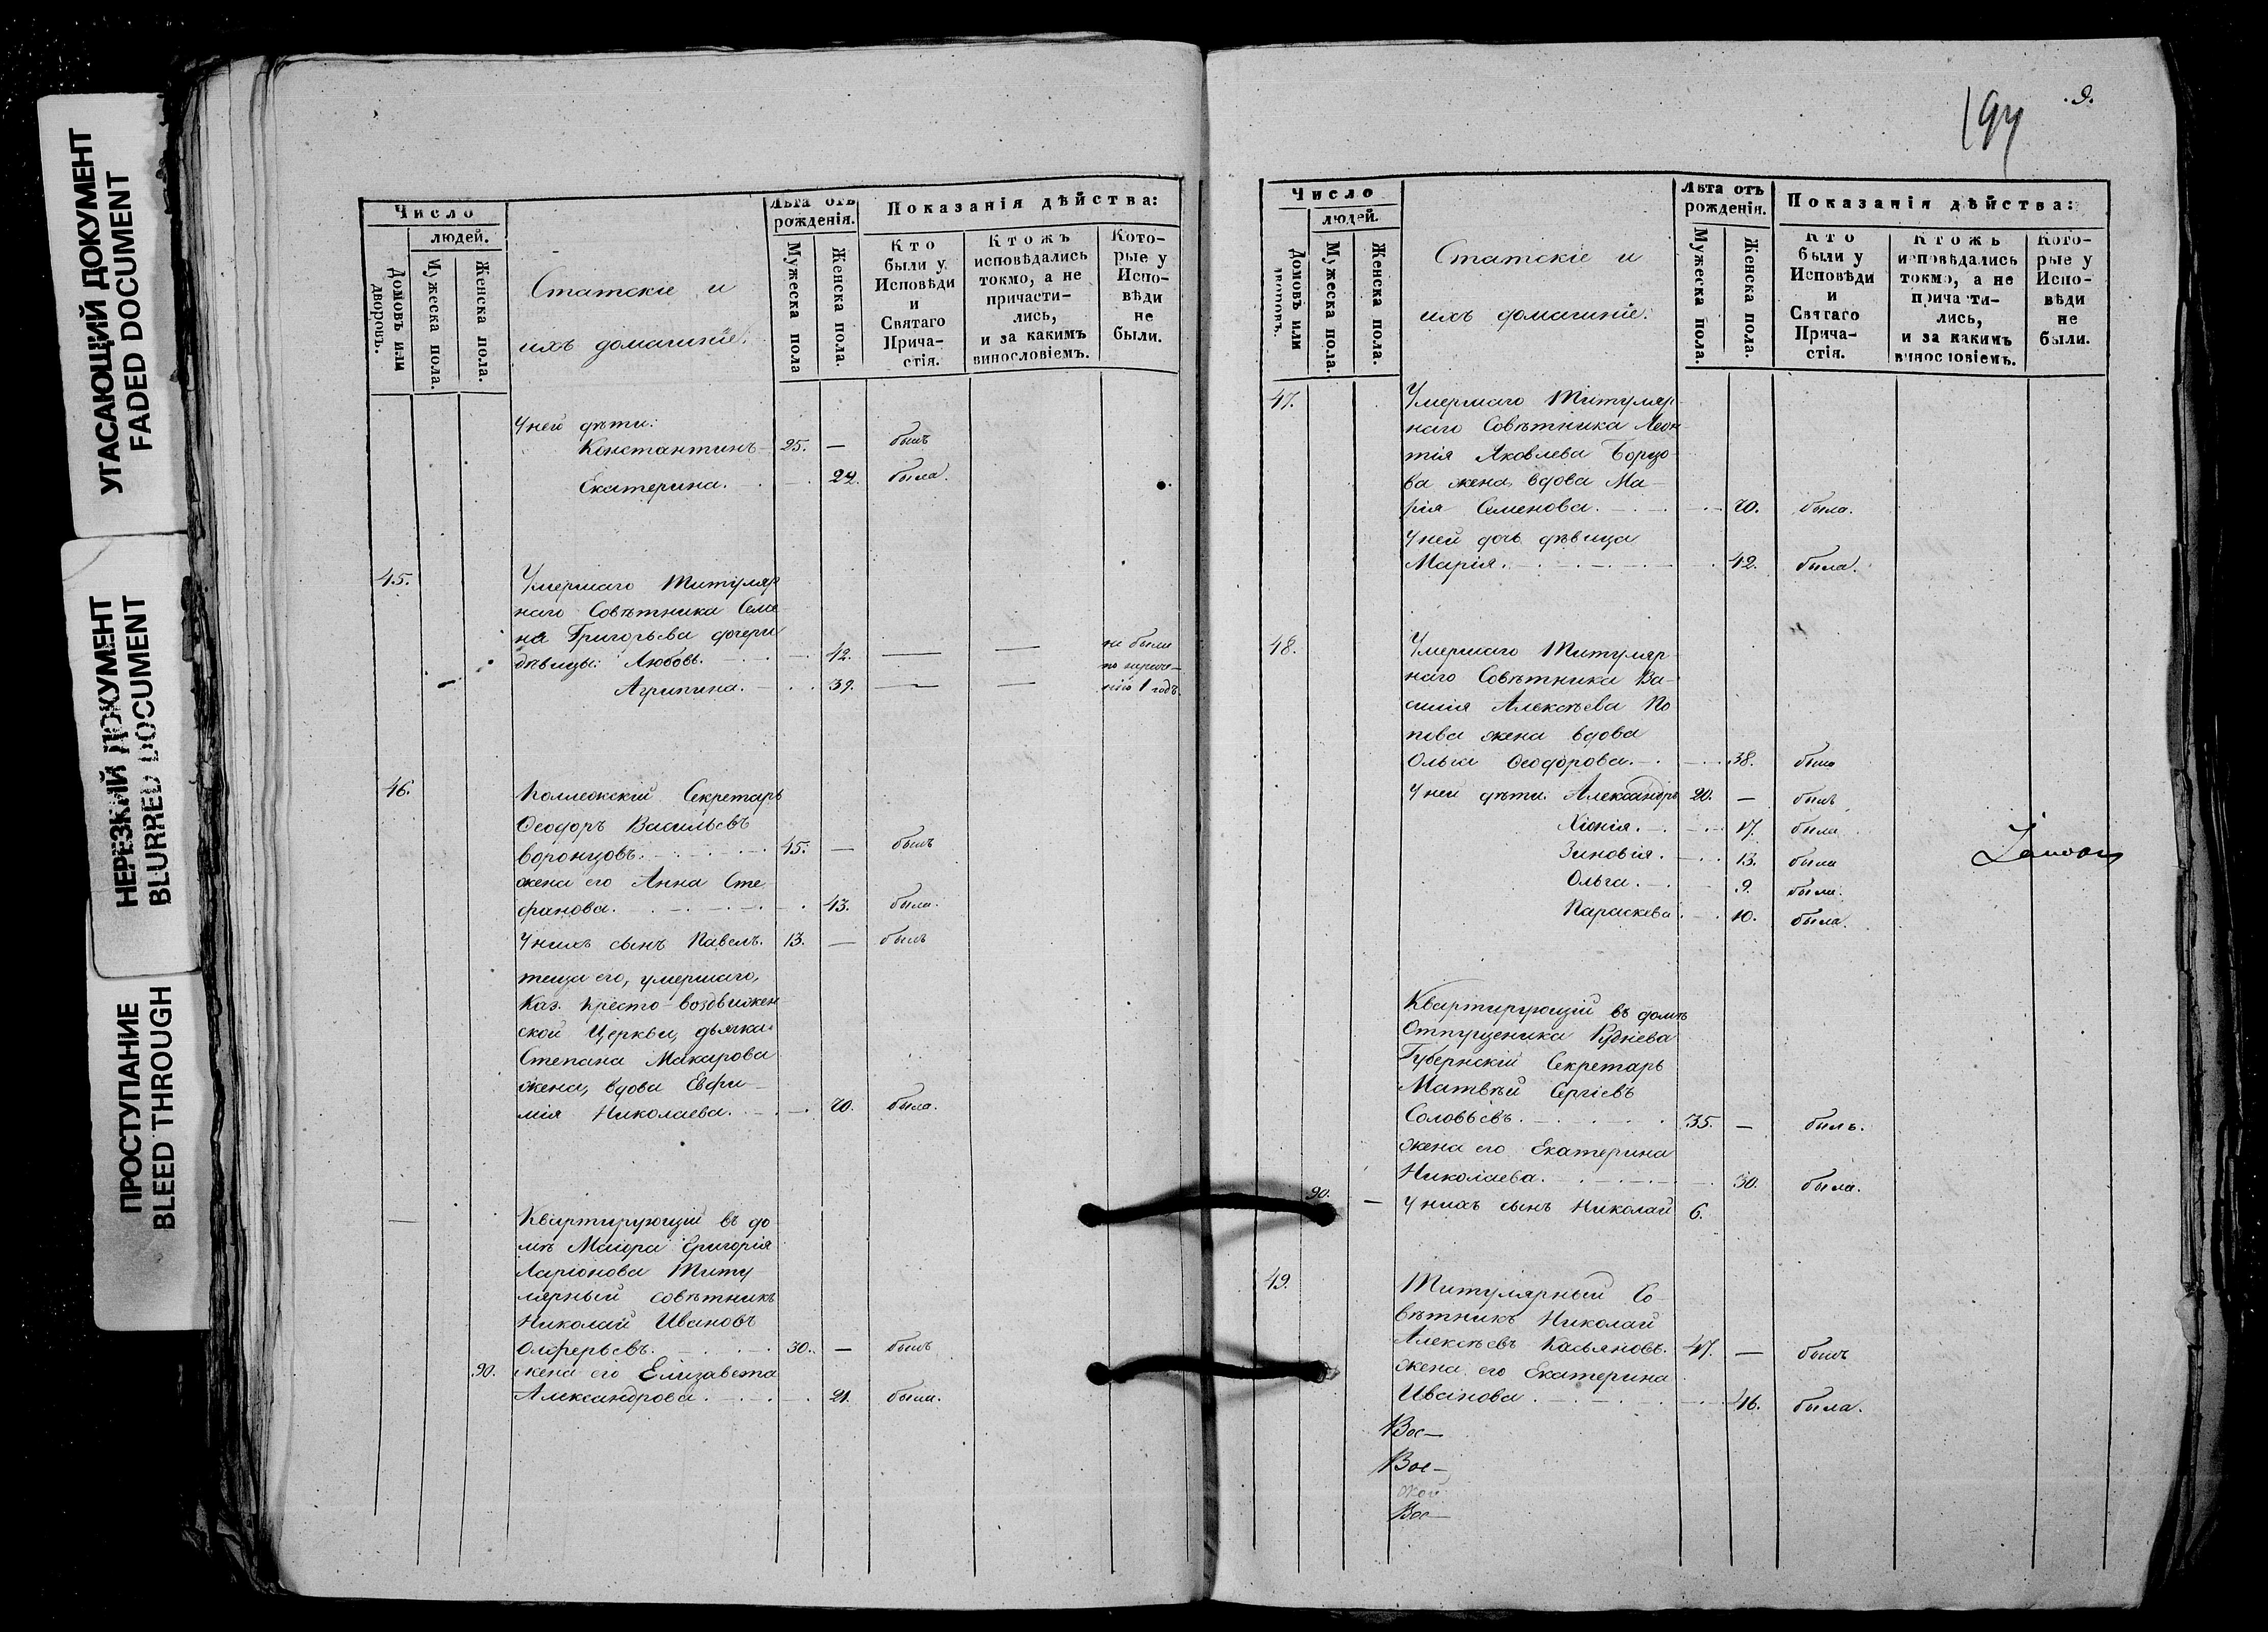 УГАСАЮЩИЙ ДОКУМЕНТ
FADED DOCUMENT
НЕРЕЗКИЙ ДОКУМЕНТ
BLURRED DOCUMENT
ПРОСТУПАНИЕ
BLEED THROUGH
Число
людей.
Домовъ или дворовъ.
Мужеска пола.
Женска пола.
Статскіе и
ихъ домашніе:
Лѣта отъ рожденія.
Мужеска пола
Женска пола.
Показанія дѣйства:
Кто были у Исповѣди и Святаго Прича-стія.
Ктожъ исповѣдались токмо, а не причасти-лись, и за какимъ винословіемъ.
Кото-рые у Испо-вѣди не были.
У ней дѣти:
Константинъ 25. — былъ
Екатерина. 22. была.
45. Умершаго Титуляр
наго Совѣтника Семе
на Григорьева дочери
дѣвицы: Любовь. 42. — — не были
Агрипина. 39. — — 1 годъ
46. Коллежскій Секретарь
Ѳеодоръ Васильевъ
Воронцовъ. 45. — былъ
жена его Анна Сте
фанова. 43. была.
У нихъ сынъ Павелъ. 13. — былъ
теща его, умершаго,
Каз. Кресто-воздвижен
ской Церкви, дьячка
Степана Макарова
жена, вдова Евфи-
мія Николаева. 70. была.
— Квартирующій въ до
мѣ Маіора Григорія
Ларіонова Титу
лярный совѣтникъ
Николай Ивановъ
Олферьевъ. 30. — былъ
90. жена его Елизавета
Александрова. 21. была.
197
.9.
Число
людей.
Домовъ или дворовъ.
Мужеска пола.
Женска пола.
Статскіе и
ихъ домашніе:
Лѣта отъ рожденія.
Мужеска пола.
Женска пола.
Показанія дѣйства:
Кто были у Исповѣди и Святаго Прича-стія.
Ктожъ исповѣдались токмо, а не причасти-лись, и за какимъ винословіемъ.
Кото-рые у Испо-вѣди не были.
47. Умершаго Титуляр
наго Совѣтника Леон
тія Яковлева Борзо
ва жена, вдова Ма-
рія Семенова. 70. была.
У ней дочь дѣвица
Марія. 42. была.
48. Умершаго Титуляр-
наго Совѣтника Ва-
силія Алексѣева По
пова жена вдова
Ольга Ѳеодорова. 38. была
У ней дѣти: Александръ 20. — былъ
Хіонія. 17. была
Зиновія. 13. была
Ольга. 9. была.
Параскева. 10. была.
Квартирующій въ домѣ
Отпущеника Руднева
Губернскій Секретарь
Матвѣй Сергіевъ
Соловьевъ. 35. — былъ.
жена его Екатерина
Николаева. 30. была.
90. — У нихъ сынъ Николай 6.
49. Титулярный Со
вѣтникъ Николай
Алексѣевъ Касьяновъ. 47. — былъ
жена его Екатерина
Иванова. 46. была.
Вос—
Вос—
Вос—